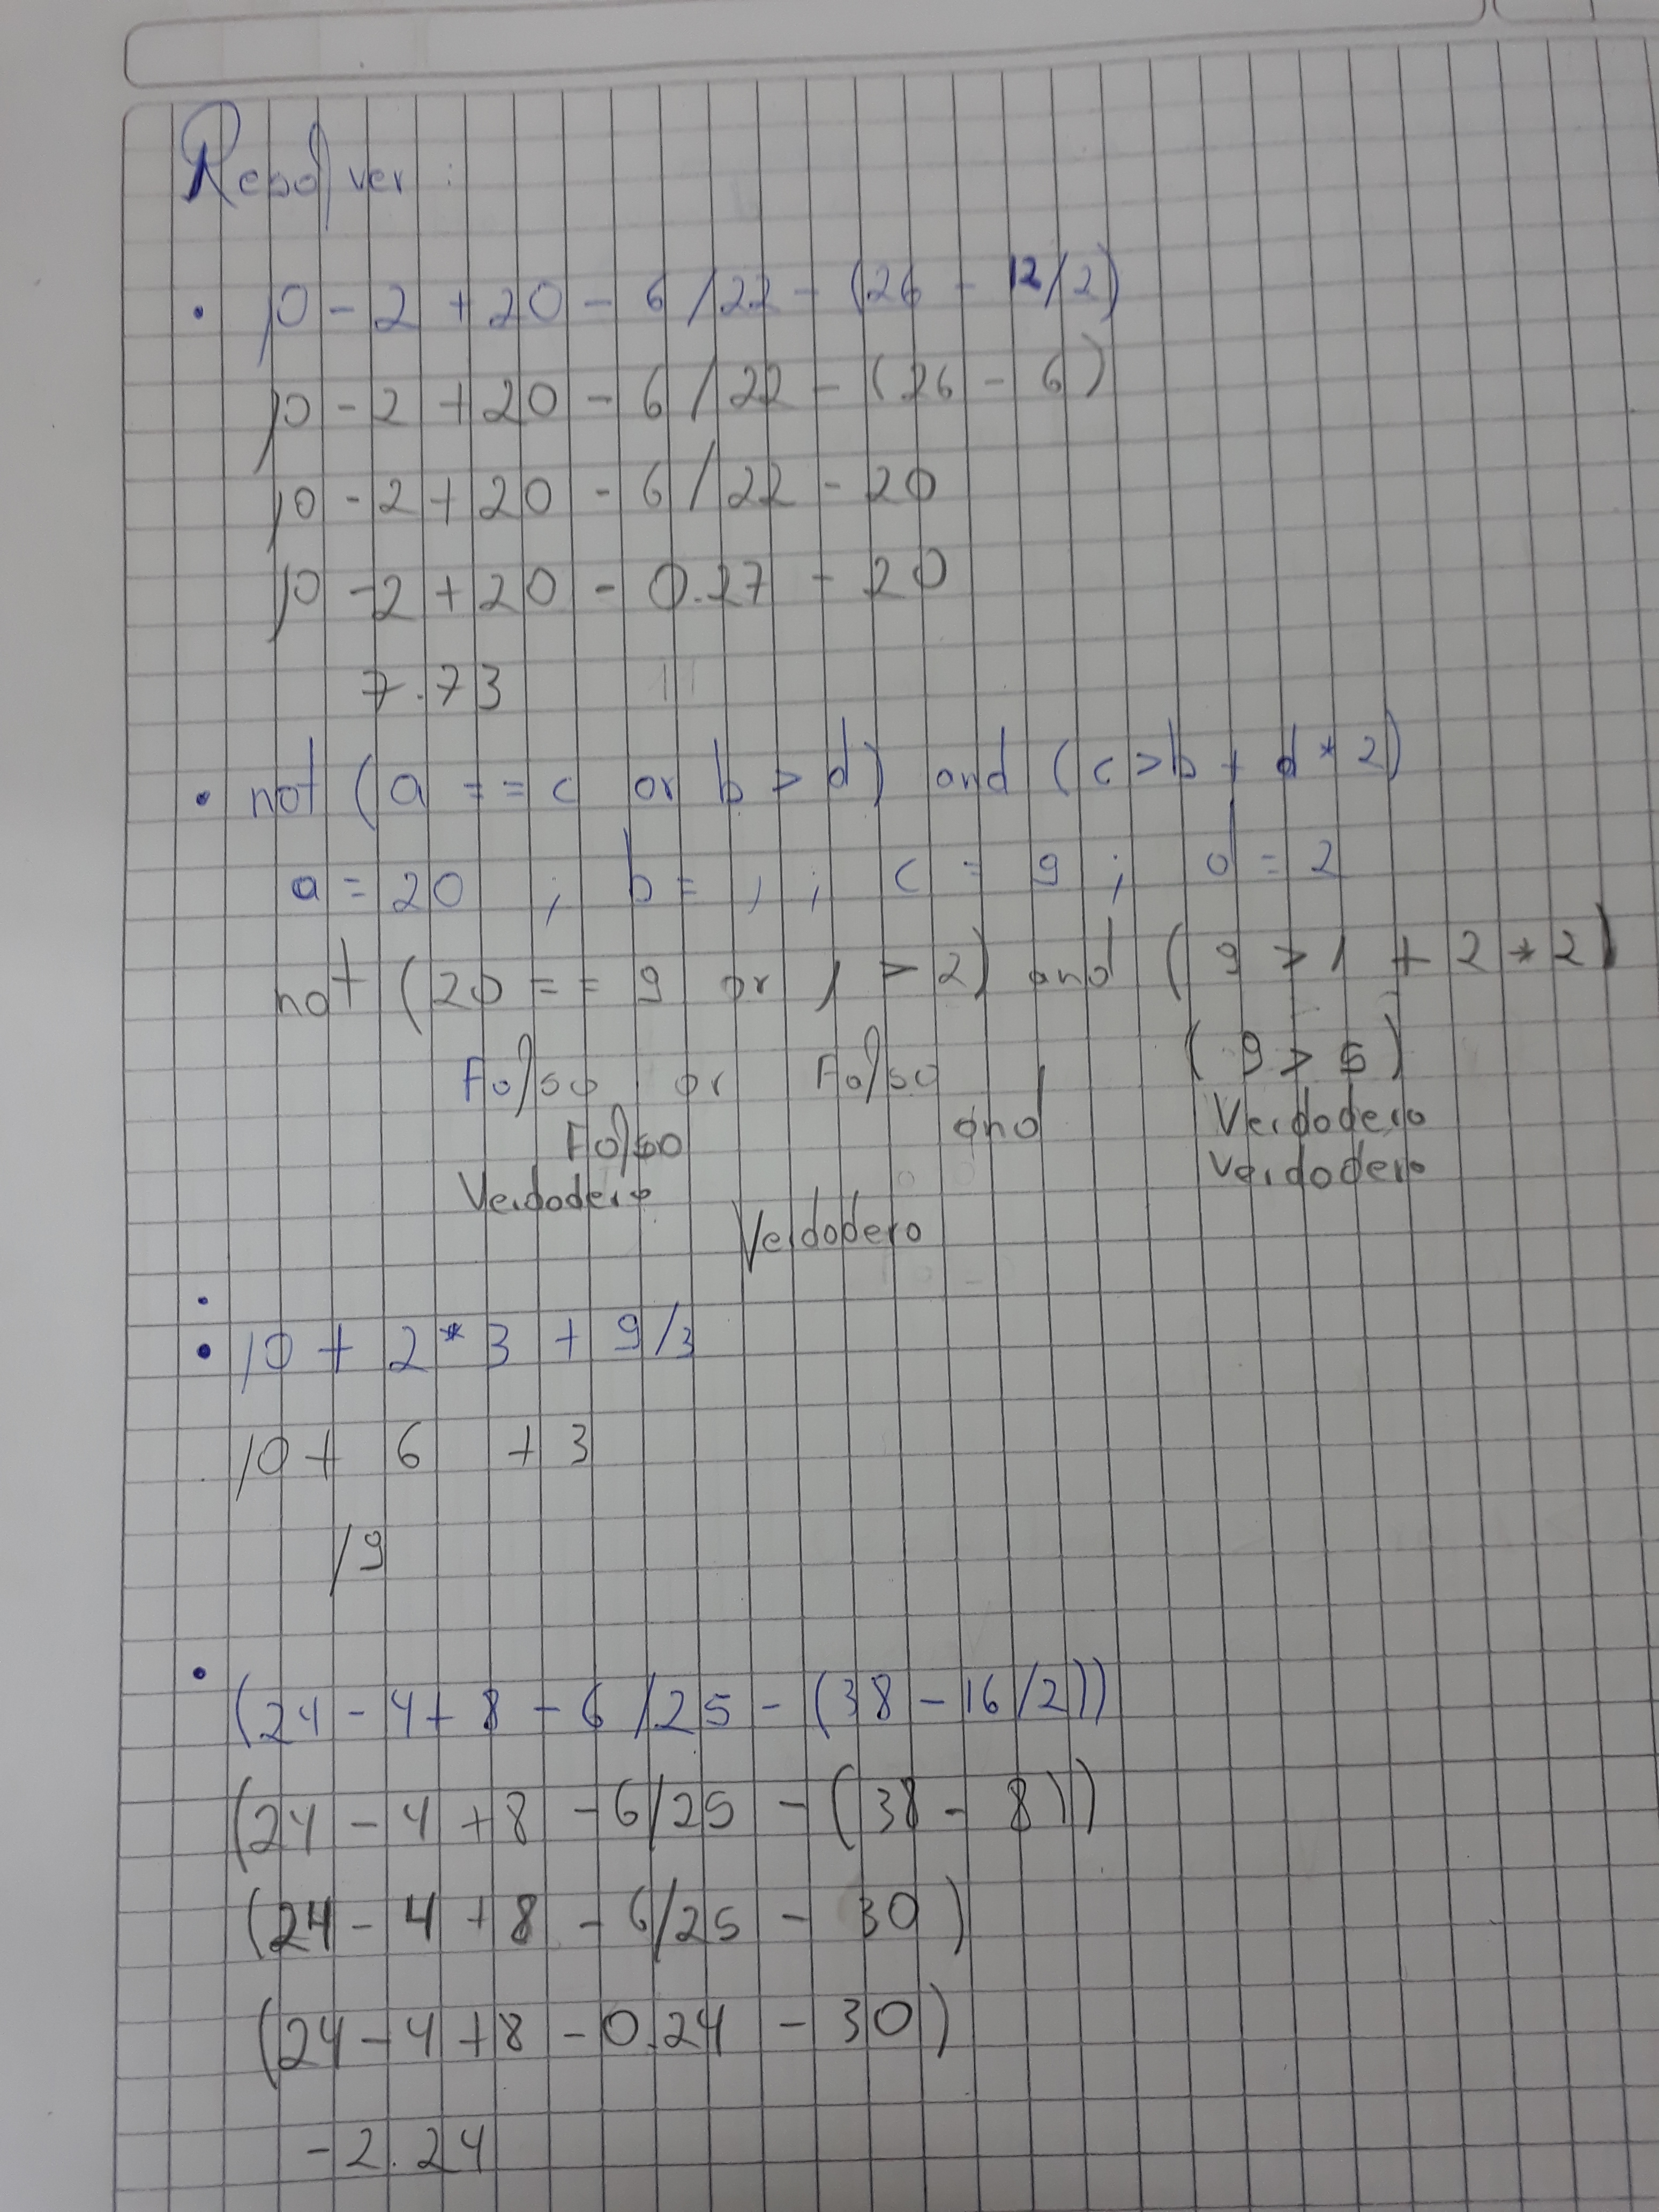 Resolver:
• 10 - 2 + 20 - 6 / 22 - (26 - 12/2)
10 - 2 + 20 - 6 / 22 - (26 - 6)
10 - 2 + 20 - 6 / 22 - 20
10 - 2 + 20 - 0.27 - 20
7.73
• not (a == c or b > d) and (c > b + d * 2)
a = 20 ; b = 1 ; c = 9 ; d = 2
not (20 == 9 or 1 > 2) and (9 > 1 + 2 * 2)
(9 > 5)
Falso or Falso
Falso and Verdadero
Verdadero Verdadero
Verdadero
•
• 10 + 2 * 3 + 9/3
10 + 6 + 3
19
• (24 - 4 + 8 - 6 / 25 - (38 - 16/2))
(24 - 4 + 8 - 6/25 - (38 - 8))
(24 - 4 + 8 - 6/25 - 30)
(24 - 4 + 8 - 0.24 - 30)
-2.24